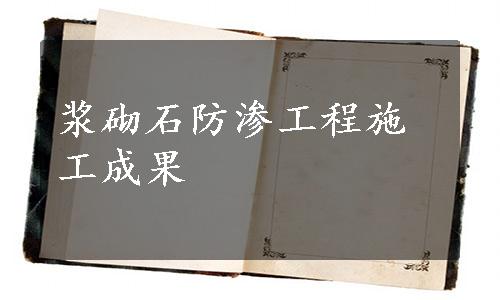 浆砌石防渗工程施
工成果